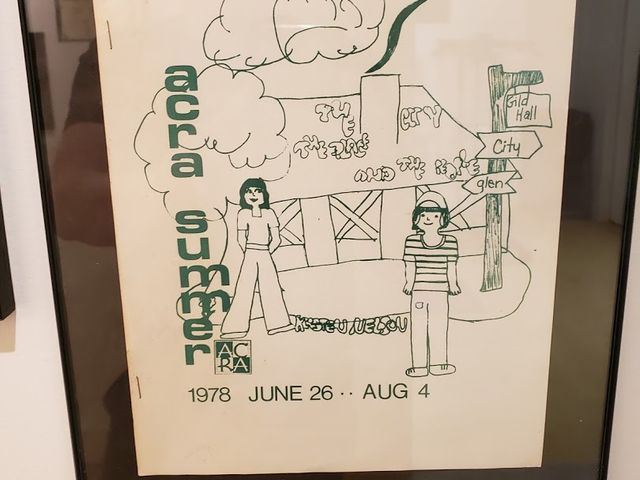 acra summer
THE CITY
THE
AND THE
Gild
Hall
City
glen
NELSON
AC
RA
1978 JUNE 26 ·· AUG 4